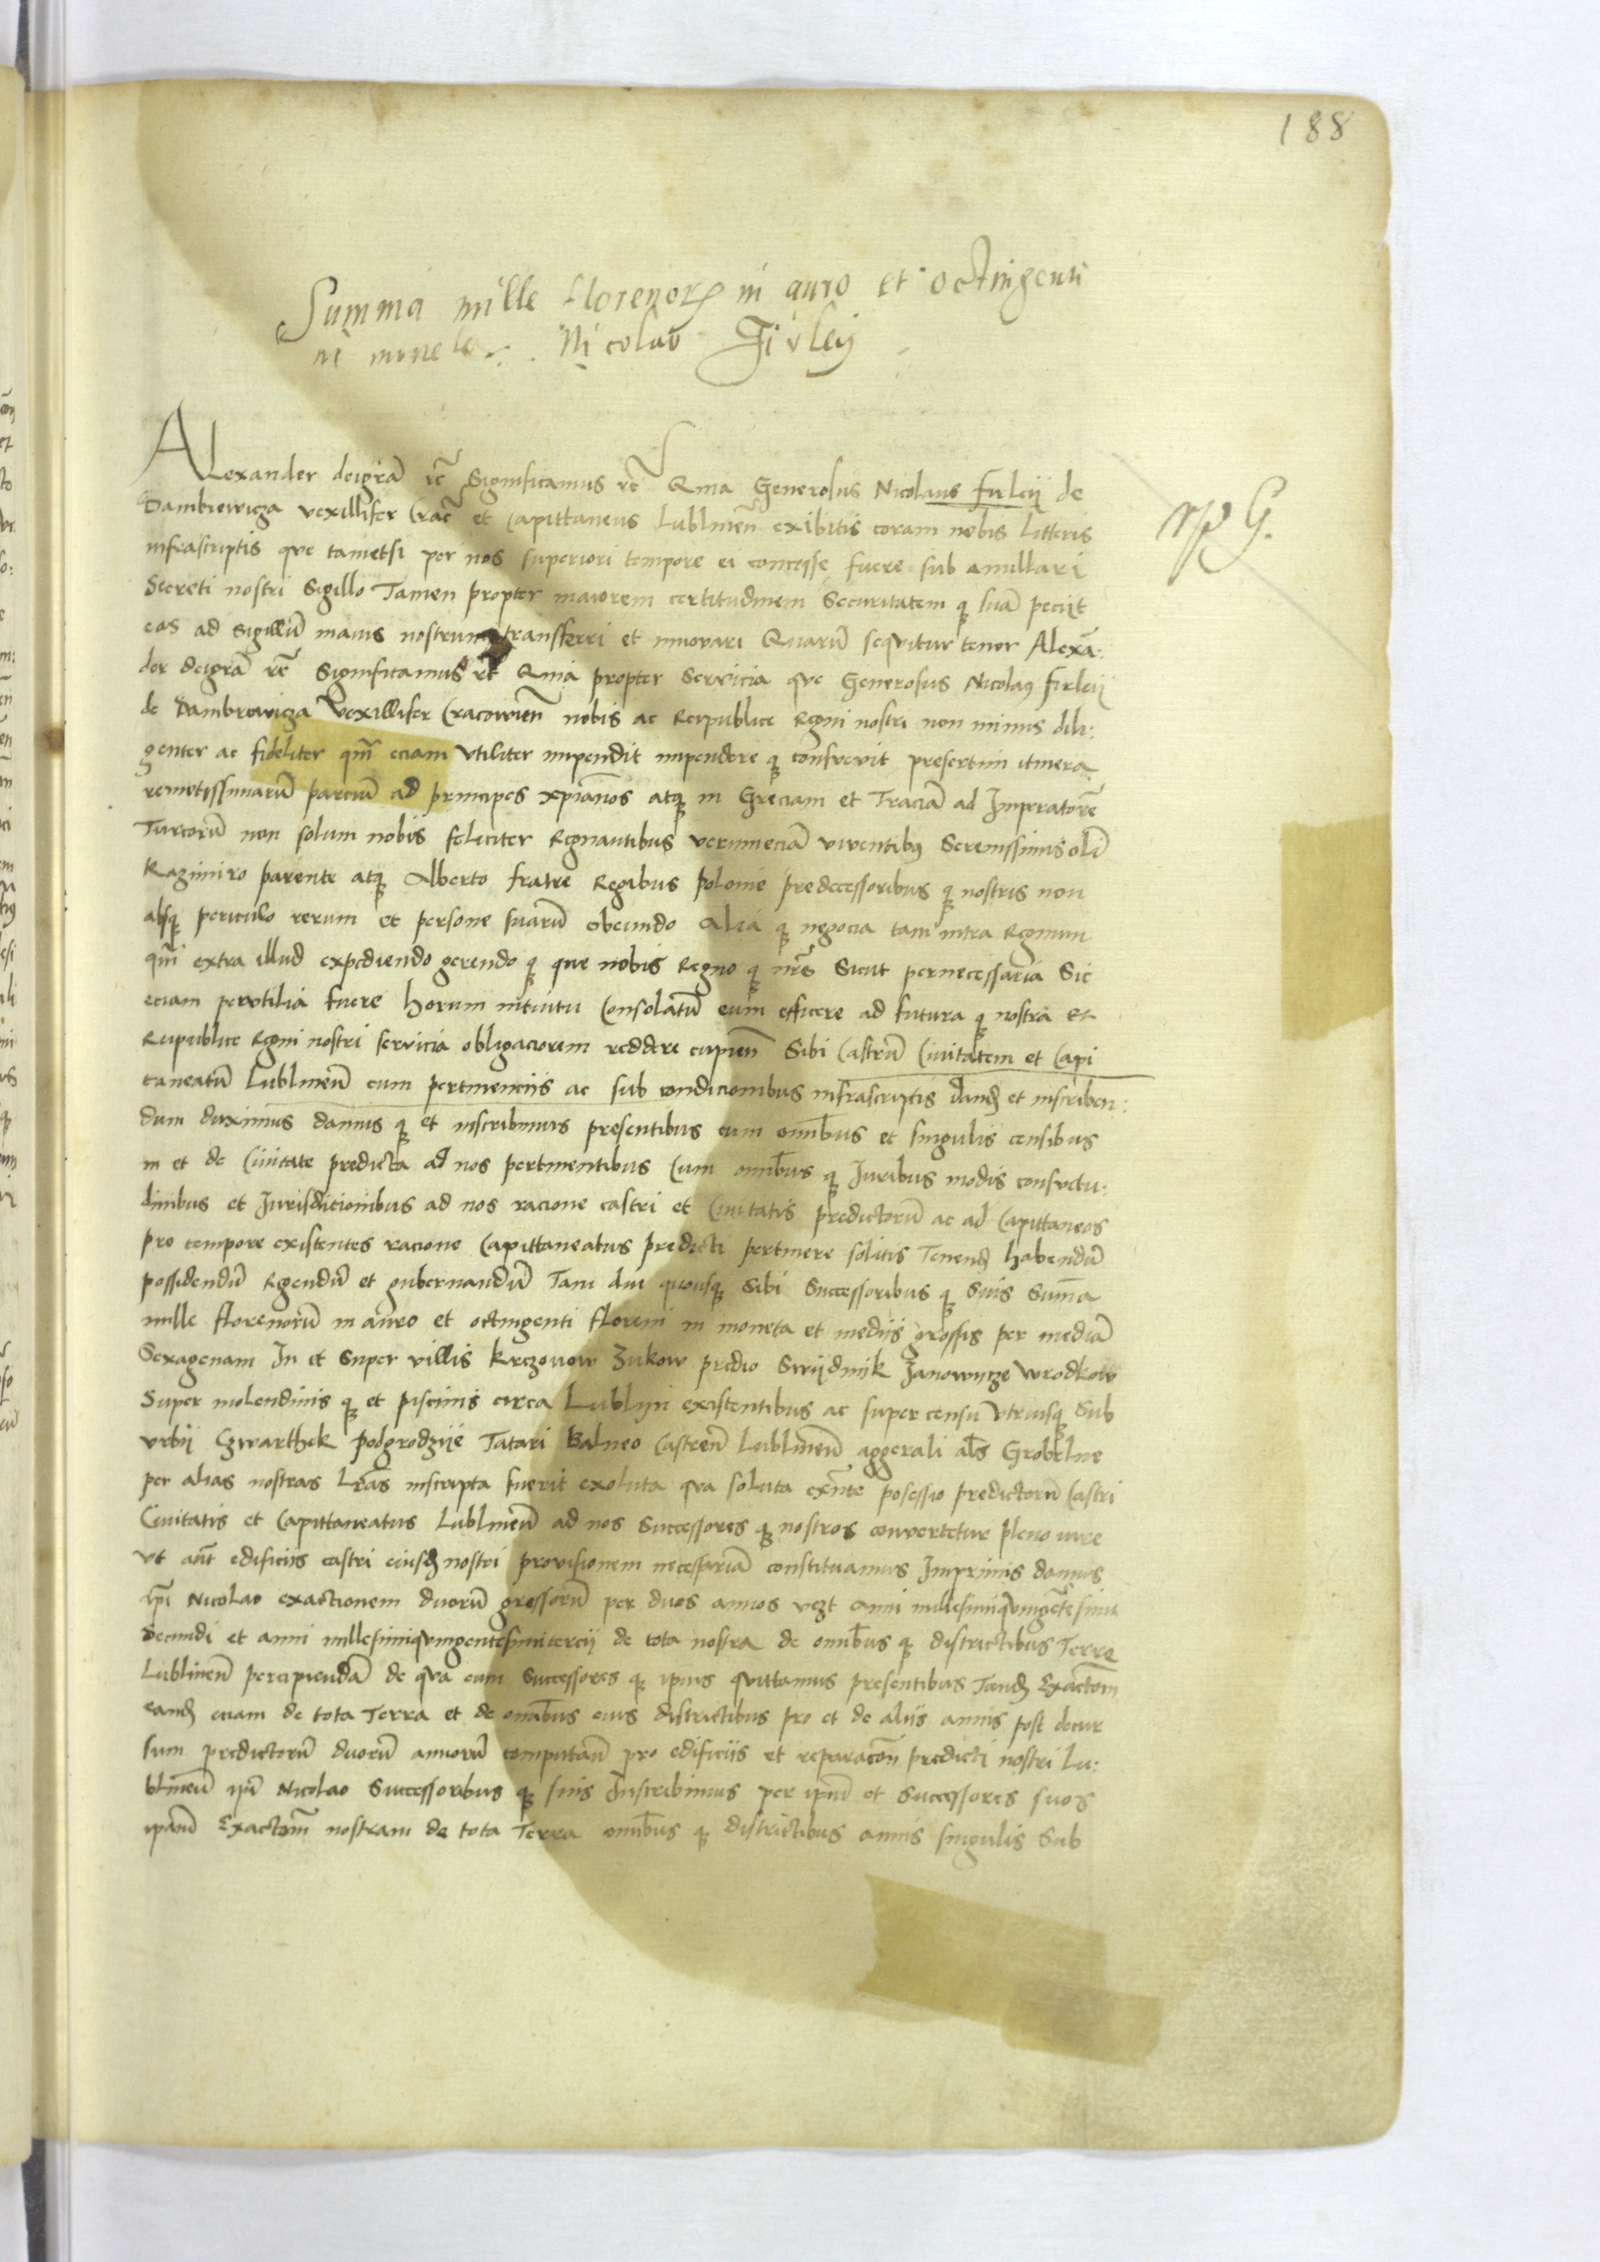 188
Summa mille florenorum in auro et octingenti
in moneta Nicolao Firleij
Alexander deigrã rẽ Significamus rẽ Quia Generosus Nicolaus firleij de
Dambrowicza vexillifer Crac̃ et Capittaneus Lublineñ exibitis coram nobis litteris
infrascriptis que tametsi per nos superiori tempore ei concesse fuere sub annullari
Secreti nostri Sigillo Tamen propter maiorem certitudinem Securitatem q suã peciit
eas ad sigillũ maius nostrum transferri et innovari Quarũ sequitur tenor Alexã:
der deigrã rẽ Significamus rẽ Quia propter Servicia que Generosus Nicolaus firleij
de Dambrowicza Vexillifer Cracovieñ nobis ac Reipublice Regni nostri non minus dili:
genter ac fideliter qm̃ eciam utiliter impendit impendere q consuevit presertim itinera
remotissimarũ parciũ ad principes xpianos atq in Greciam et Traciã ad Imperatorẽ
Turcorũ non solum nobis feliciter Regnantibus verumeciã viventibus Serenissimis olĩ
Kazimiro parente atq Alberto fratre Regibus polonie predecessoribus q nostris non
absq periculo rerum et persone suarũ obeundo Alia q negocia tam intra Regnum
qm̃ extra illud expediendo gerendo q que nobis Regno q nr̃o Sicut pernecessaria Sic
eciam perutilia fuere horum intuitu Consolatũ eum efficere ad futura q nostra et
Reipublice Regni nostri servicia obligaciorem reddere cupieñ Sibi Castrũ Civitatem et Capi
taneatũ Lublineñ cum pertinenciis ac sub condicionibus infrascriptis dand et inscriben:
dum duximus damus q et inscribimus presentibus cum omĩbus et singulis censibus
in et de Civitate predicta ad nos pertinentibus Cum omĩbus q Juribus modis consuetu:
dinibus et Jurisdicionibus ad nos racione castri et Civitatis predictorũ ac ad Capittaneos
pro tempore existentes racione Capittaneatus predicti pertinere solitis Tenend habendũ
possidendũ Regendũ et gubernandũ Tam diu quousq Sibi Successoribus q Suis Suma
mille florenorũ in auro et octingenti floreni in moneta et mediis grossis per mediã
Sexagenam In et Super villis Krczonow Zukow predio Swijdnik Janowicze Wrodkow
Super molendinis q et piscinis circa Lublijn existentibus ac super censu utriusq Sub
urbij Czwarthek podgrodzije Tatari Balneo Castreñ Lublineñ aggerali als Grobelne
per alias nostras lrãs inscripta fuerit exoluta qua soluta exñte posessio predictorũ Castri
Civitatis et Capittaneatus Lublineñ ad nos Successores q nostros convertetur pleno iure
Ut aũt edificiis castri eiusd nostri provisionem necessariã constituamus Imprimis damus
ipĩ Nicolao exactionem duorũ grossorũ per duos annos vezt anni millesimiquingẽtesimi
secundi et anni millesimiquingentesimitercij de tota nostra de omĩbus q districtibus Terre
Lublineñ percipiendã de qua eum Successores q ipius quittamus presentibus Tand Exactõm
eand eciam de tota Terra et de omĩbus eius districtibus pro et de aliis annis post decur
sum predictorũ duorũ annorũ computañ pro edificiis et reparacõn predicti nostri Lu:
blineñ ipĩ Nicolao Successoribus q suis Inscribimus per ipũ et Successores suos
ipam Exactõm nostram de tota Terra omĩbus q districtibus annis singulis Sub